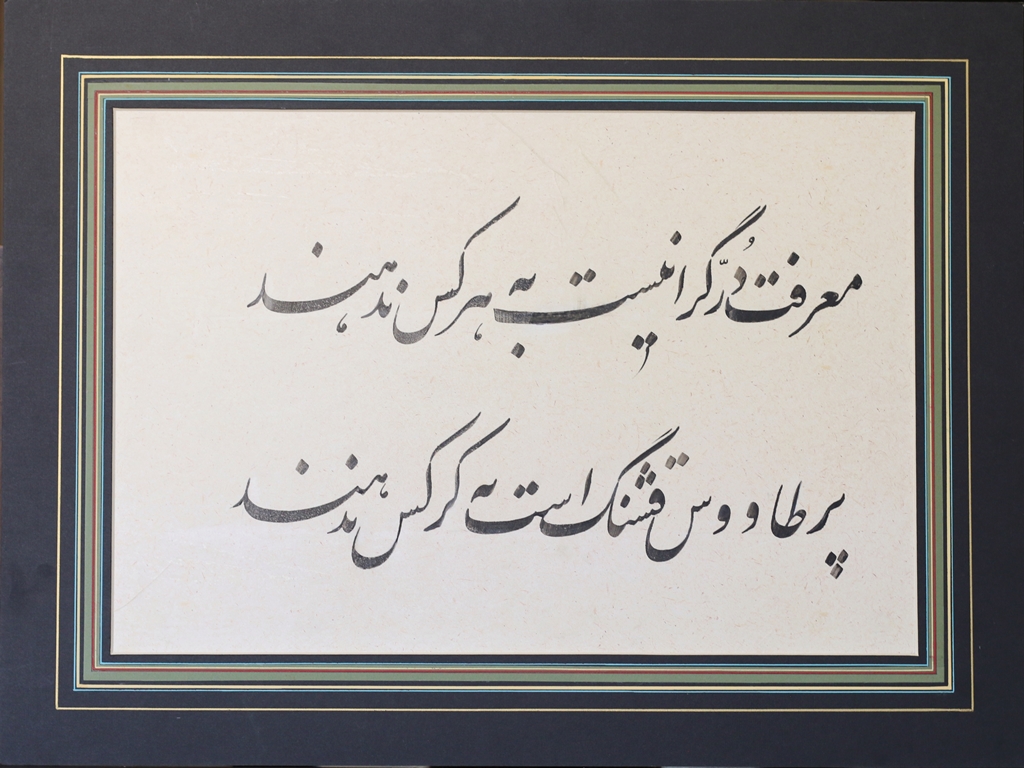 معرفت دُرّ گرانیست به هر کس ندهند
پر طاووس قشنگ است به کرکس ندهند